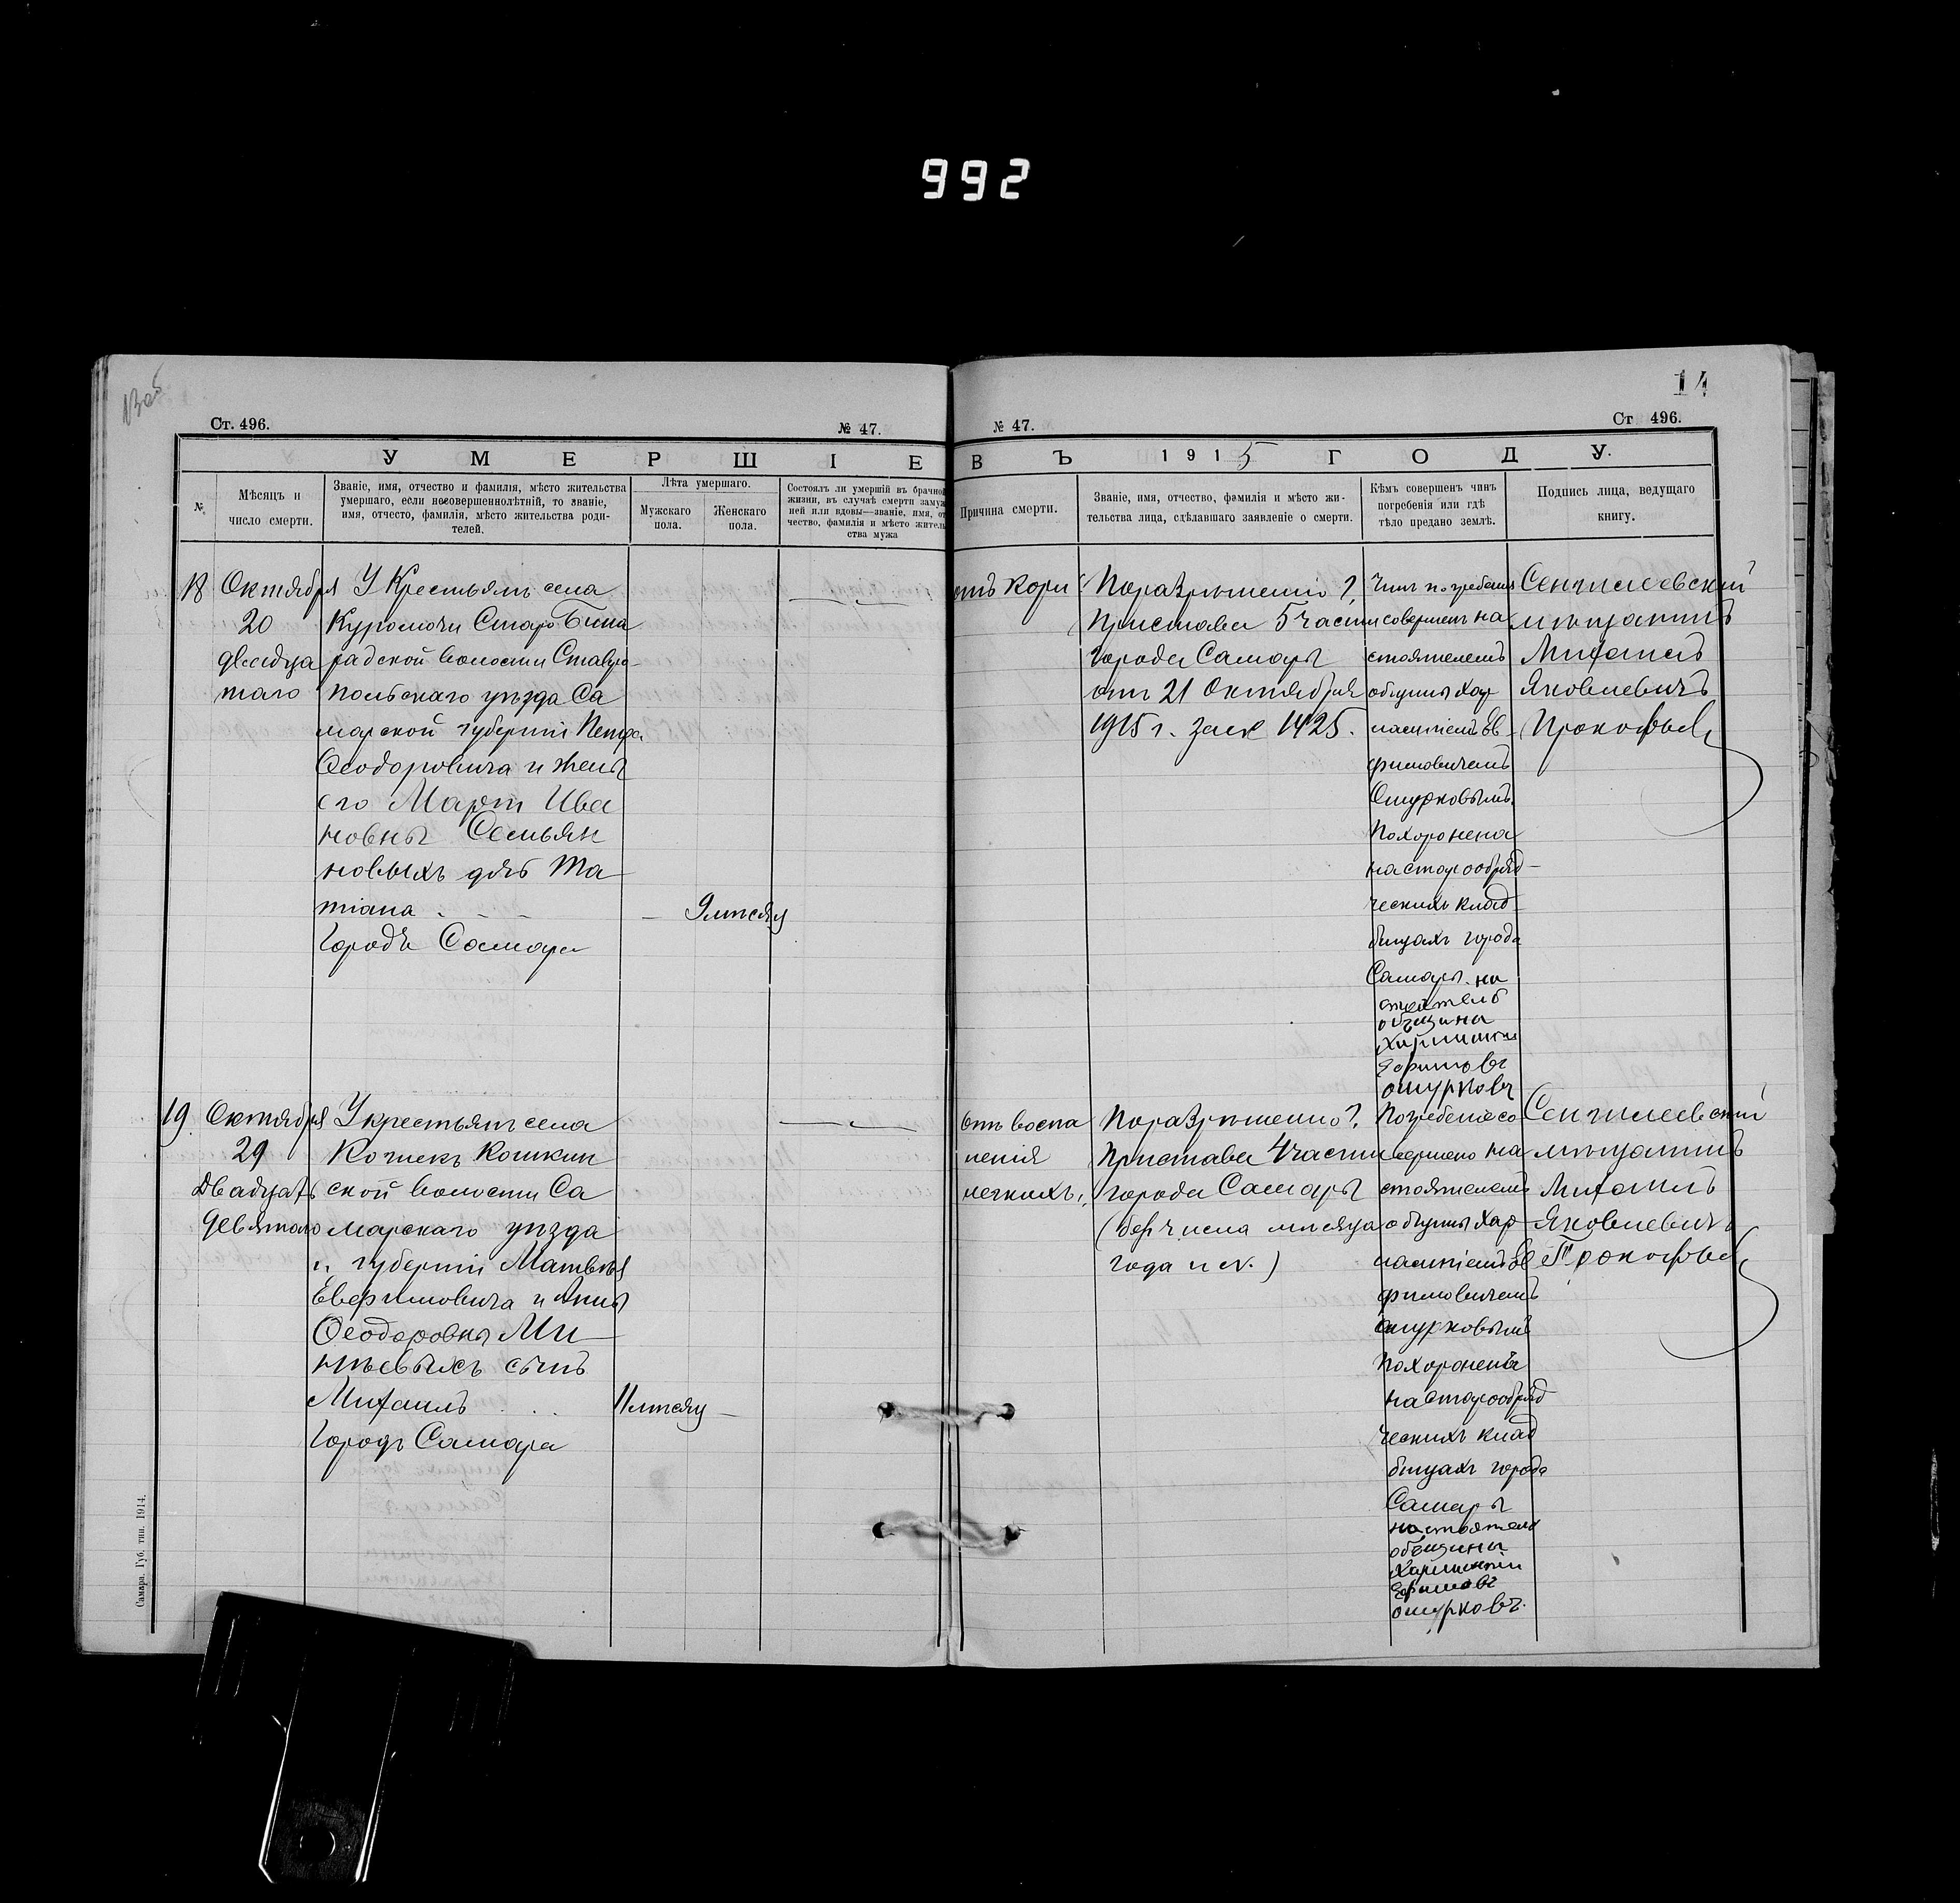 992
14
Ст. 496.
№ 47.
№ 47.
Ст 496.
УМЕРШІЕ ВЪ 1915 ГОДУ.
№
Мѣсяцъ и
число смерти.
Званіе, имя, отчество и фамилія, мѣсто жительства
умершаго, если несовершеннолѣтній, то званіе,
имя, отчесто, фамилія, мѣсто жительства роди-
телей.
Лѣта умершаго.
Мужскаго
пола.
Женскаго
пола.
Состоялъ ли умершій въ брачной
жизни, въ случаѣ смерти замуж
ней или вдовы—званіе, имя, от
чество, фамилія и мѣсто житель
ства мужа
Причина смерти.
Званіе, имя, отчество, фамилія и мѣсто жи-
тельства лица, сдѣлавшаго заявленіе о смерти.
Кѣмъ совершенъ чинъ
погребенія или гдѣ
тѣло предано землѣ.
Подпись лица, ведущаго
книгу.
18
Октября
20
двадца
таго
У Крестьянъ села
Куромочи Старо Бина
радской волости Ставро-
польскаго уѣзда Са
марской губерніи Петра
Ѳеодоровича и жены
его Марѳы Ива
новны Семьян
новыхъ дочь Та
тіана
Городъ Самара
9 мѣсяц
отъ Кори
По разрѣшенію г.
Пристава 5 части
города Самары
отъ 21 Октября
1915 г. за № 1425.
Чинъ погребенія
совершенъ на
стоятелемъ
общины Хар
лампіемъ Ев
фимовичемъ
Ошурковымъ.
Похоронена
на старообряд-
ческихъ клад
бищахъ города
Самары. на
стоятель
общины
Харлампій
Ефимовъ
ошурковъ
Сенгилеевскій
мѣщанинъ
Михаилъ
Яковлевичъ
Прокофьев
19
Октября
29
Двадцать
девятого
У крестьянъ села
Кошкин
ской волости Са
марскаго уѣзда
и губерніи Матвѣя
Евфимовича и Анны
Ѳеодоровны Ми
нѣевыхъ сынъ
Михаилъ
Городъ Самара
11 мѣсяц
отъ воспа
ленія
легкихъ,
По разрѣшенію г.
Пристава 4 части
города Самары
(без числа мѣсяца
года и №.)
Погребеніе со
вершено на
стоятелемъ
общины Хар
лампіемъ Ев
фимовичемъ
Ошурковымъ
Похороненъ
на старообряд
ческихъ клад
бищахъ города
Самары
настоятель
общины
Харлампій
Ефимовъ
ошурковъ.
Сенгилеевскій
мѣщанинъ
Михаилъ
Яковлевичъ
Прокофьев
Самара. Губ. тип. 1914.